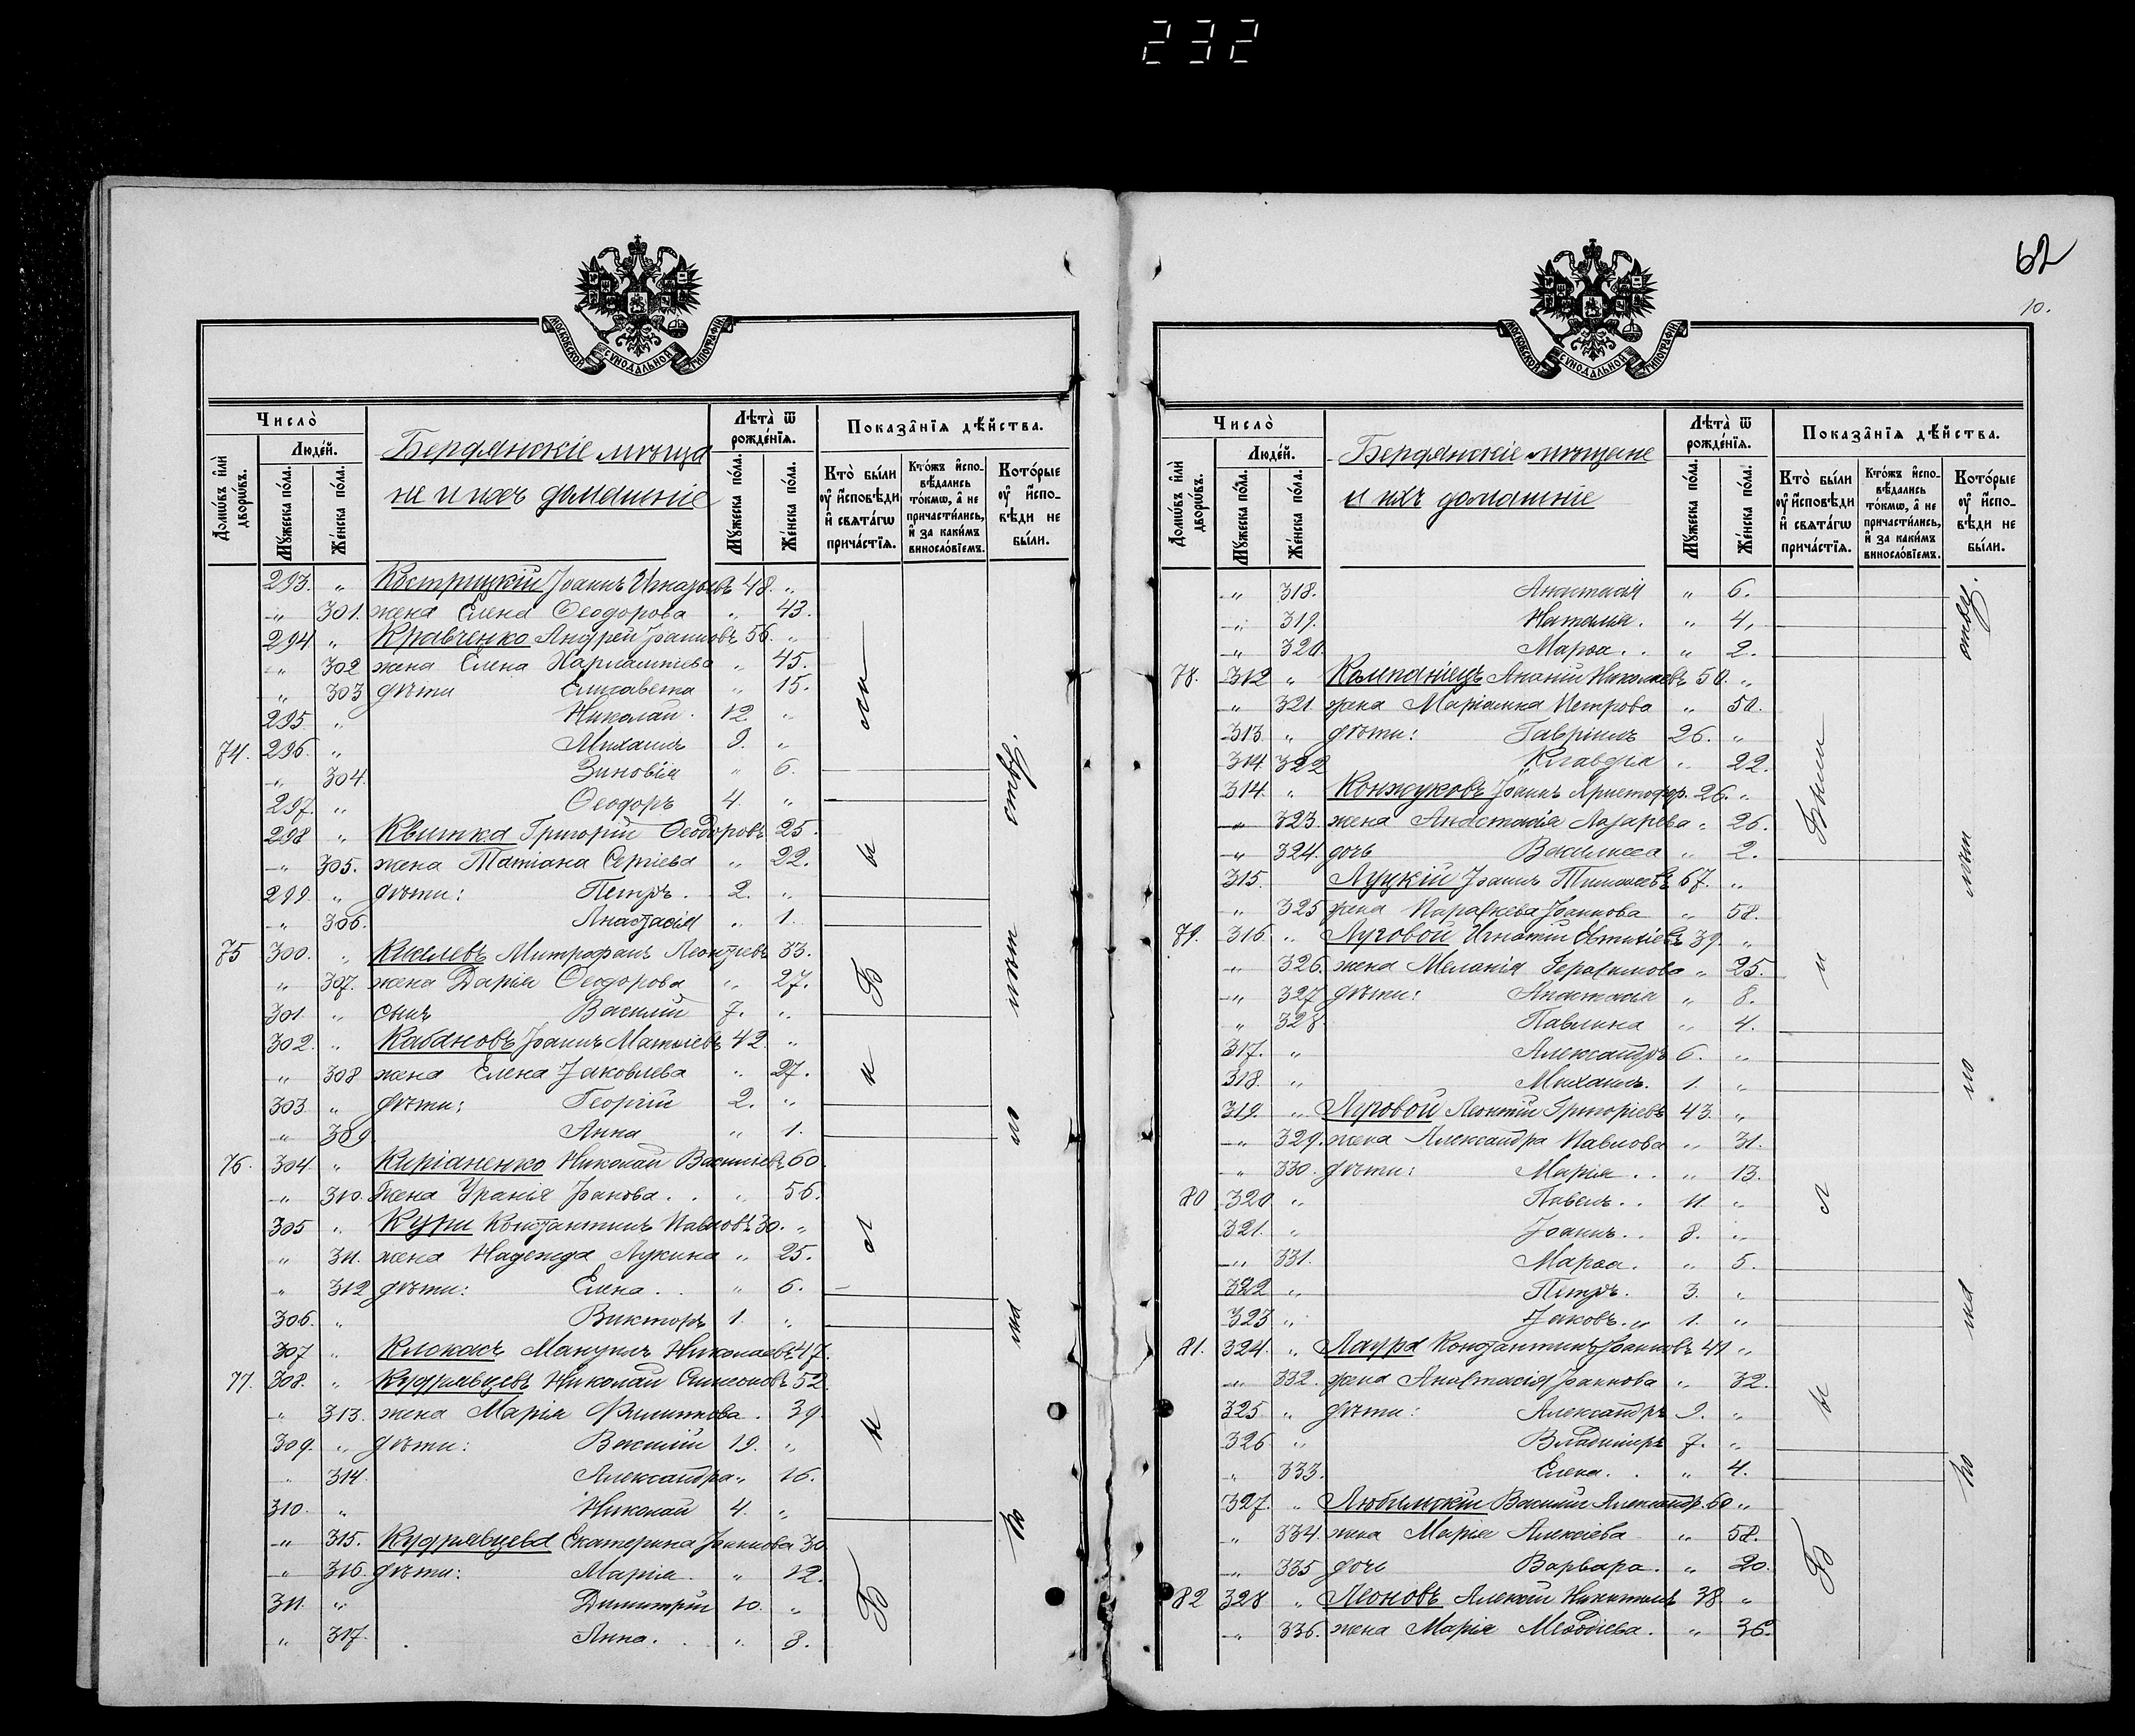 232
МОСКОВСКОЙ СѴНОДАЛЬНОЙ ТИПОГРАФІИ
Число̀
Домѡ́въ и҆лѝ дворѡ́въ.
Люде́й.
Мꙋ́жеска по́ла.
Же́нска по́ла.
Бердянскіе мѣща
не и ихъ домашніе
Лѣ́та ѿ рожде́нїѧ.
Мꙋ́жеска по́ла.
Же́нска по́ла.
Показа̂нїѧ дѣ́йства.
Кто̀ бы́ли ᲂу҆ и҆сповѣ́ди и҆ свѧта́гѡ прича́стїѧ.
Кто́жъ и҆спо- вѣ́дались то́кмѡ, а҆ не причасти́лись, и҆ за каки́мъ винословїемъ.
Кото́рые ᲂу҆ и҆спо- вѣ́ди не бы́ли.
293. " Кострицкій Іоаннъ Игнатьевъ 48. "
" 301. жена Елена Ѳеодорова " 43.
294 " Кравченко Андрей Іоанновъ 56. "
" 302 жена Елена Харлампіева " 45.
" 303 дѣти Елизавета " 15.
295 " Николай. 12 "
74. 296. " Михаилъ 9. "
" 304. Зиновія " 6.
297. " Ѳеодоръ 4. "
298 " Квитка Григорій Ѳеодоровъ 25.
" 305. жена Татіана Сергіева " 22.
299. " дѣти: Петръ. 2. "
" 306. Анастасія " 1.
75 300. " Митрофанъ Леонтіевъ 33.
" 307. жена Дарія Ѳеодорова " 27.
301. " сынъ Василій 7. "
302. " Кабановъ Іоаннъ Матѳіевъ 42 "
" 308 жена Елена Іаковлева " 27.
303. " дѣти: Георгій 2. "
" 309 Анна " 1.
76. 304. " Киріаненко Николай Василіевъ 60.
" 310. Жена Уранія Іоанова. . " 56.
305 " Кури Константинъ Павловъ 30. "
" 311. жена Надежда Лукина " 25.
" 312 дѣти: Елена. . " 6.
306. " Викторъ 1. "
307 " Клокакъ Мануилъ Николаевъ 47.
77. 308. " Кудрявцевъ Николай Симеоновъ 52.
" 313. жена Марія Филиппова. 39.
309. " дѣти: Василій 19. "
" 314. Александра " 16.
310. " Николай 4. "
" 315. Кудрявцева Екатерина Іоаннова 30
" 316. дѣти: Марія. " 12.
311. " Димитрій 10. "
" 317. Анна. " 3.
Б ы л и
Б ы ли
По мал лѣт ству.
62
10.
МОСКОВСКОЙ СѴНОДАЛЬНОЙ ТИПОГРАФІИ
Число̀
Домѡ́въ и҆лѝ дворѡ́въ.
Люде́й.
Мꙋ́жеска по́ла.
Же́нска по́ла.
Бердянскіе мѣщане
и ихъ домашніе
Лѣ́та ѿ рожде́нїѧ.
Мꙋ́жеска по́ла.
Же́нска по́ла.
Показа̂нїѧ дѣ́йства.
Кто̀ бы́ли ᲂу҆ и҆сповѣ́ди и҆ свѧта́гѡ прича́стїѧ.
Кто́жъ и҆спо- вѣ́дались то́кмѡ, а҆ не причасти́лись, и҆ за каки́мъ винословїемъ.
Кото́рые ᲂу҆ и҆спо- вѣ́ди не бы́ли.
" 318. Анастасія " 6.
" 319. Наталія. " 4.
" 320. Марѳа. . " 2.
78. 312 " Компаніецъ Ананій Николаевъ 50. "
" 321. жена Маріамна Петрова " 50.
313 " дѣти: Гавріилъ 26. "
314 322 Клавдія " 22.
314. " Конжуковъ Іоаннъ Христофор. 26. "
" 323. жена Анастасія Лазарева " 26.
" 324. дочь Василисса " 2.
315. Луцкій Іоаннъ Тимоѳеевъ 67. "
" 325 жена Параскева Іоаннова " 58.
79. 316. " Луговой Игнатій Евтихіевъ 39. "
" 326. жена Меланія Герасимова " 25.
" 327 дѣти: Анастасія " 8.
" 328 Павлина " 4.
317. " Александръ 6. "
318. " Михаилъ. 1. "
319. " Луговой Леонтій Григоріевъ 43. "
" 329. жена Александра Павлова " 31.
" 330. дѣти: Марія. . " 13.
80 320 " Павелъ. . 11. "
321. " Іоаннъ. . 8. "
" 331. Марѳа. " 5.
322 " Петръ. 3. "
323 " Іаковъ. " 1. "
81. 324. " Лаура Константинъ Іоанновъ 41 "
" 332. жена Анастасія Іоаннова " 32.
325 " дѣти: Александръ 9. "
326 " Владиміръ 7. "
" 333. Елена. . " 4.
327. " Любимскій Василій Александр. 60 "
" 334. жена Марія Алексіева " 58.
" 335 дочь Варвара. " 20.
82 328 " Леоновъ Алексій Никитинъ 38. "
" 336. жена Марія Меѳодіева. " 36.
Б ы л и
Были
По мал но лѣт ству.